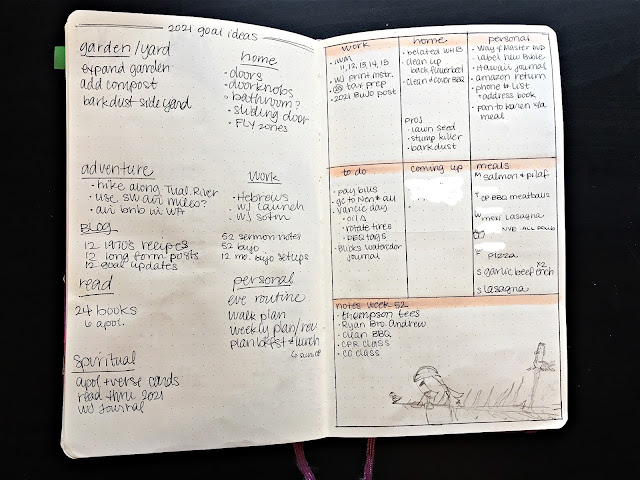 2021 goal ideas
garden/yard
expand garden
add compost
barkdust side yard
home
• doors
• doorknobs
• bathroom?
• sliding door
• FLY zones
adventure
• hike along Tual. River
• use SW air miles?
• air bnb in WA
work
• Hebrews
• WJ launch
• WJ sotm
BLOG
12 1970's recipes
12 long form posts
12 goal updates
52 sermon notes
52 bujo
12 mo. bujo setups
read
24 books
6 apol.
personal
eve routine
walk plan
weekly plan/rev
plan bkfst + lunch
spiritual
apol + verse cards
read thru 2021
WJ journal
work
11, 12, 13, 14, 15
• WJ print mstr.
tax prep
• 2021 BUJO post
home
• belated
• clean up
back flowerbed
• Clean + cover BBQ
PROJ
• lawn seed
• stump killer
• barkdust
personal
• Way of Master DVD
• label new Bible
• Hawaii journal
• amazon return
• phone # list
+ address book
• pan to Karen
meal
to do
• pay bills
• gc to
• oil $
• rotate tires
• DEQ tags
journal
coming up
meals
M salmon + pilaf
T BBQ meatballs
W mexi lasagna
F pizza
S garlic beef ench x2
S lasagna
notes week 52
• thompson tees
• Ryan Bro. Andrew
• clean BBQ
• CPR class
• CO class